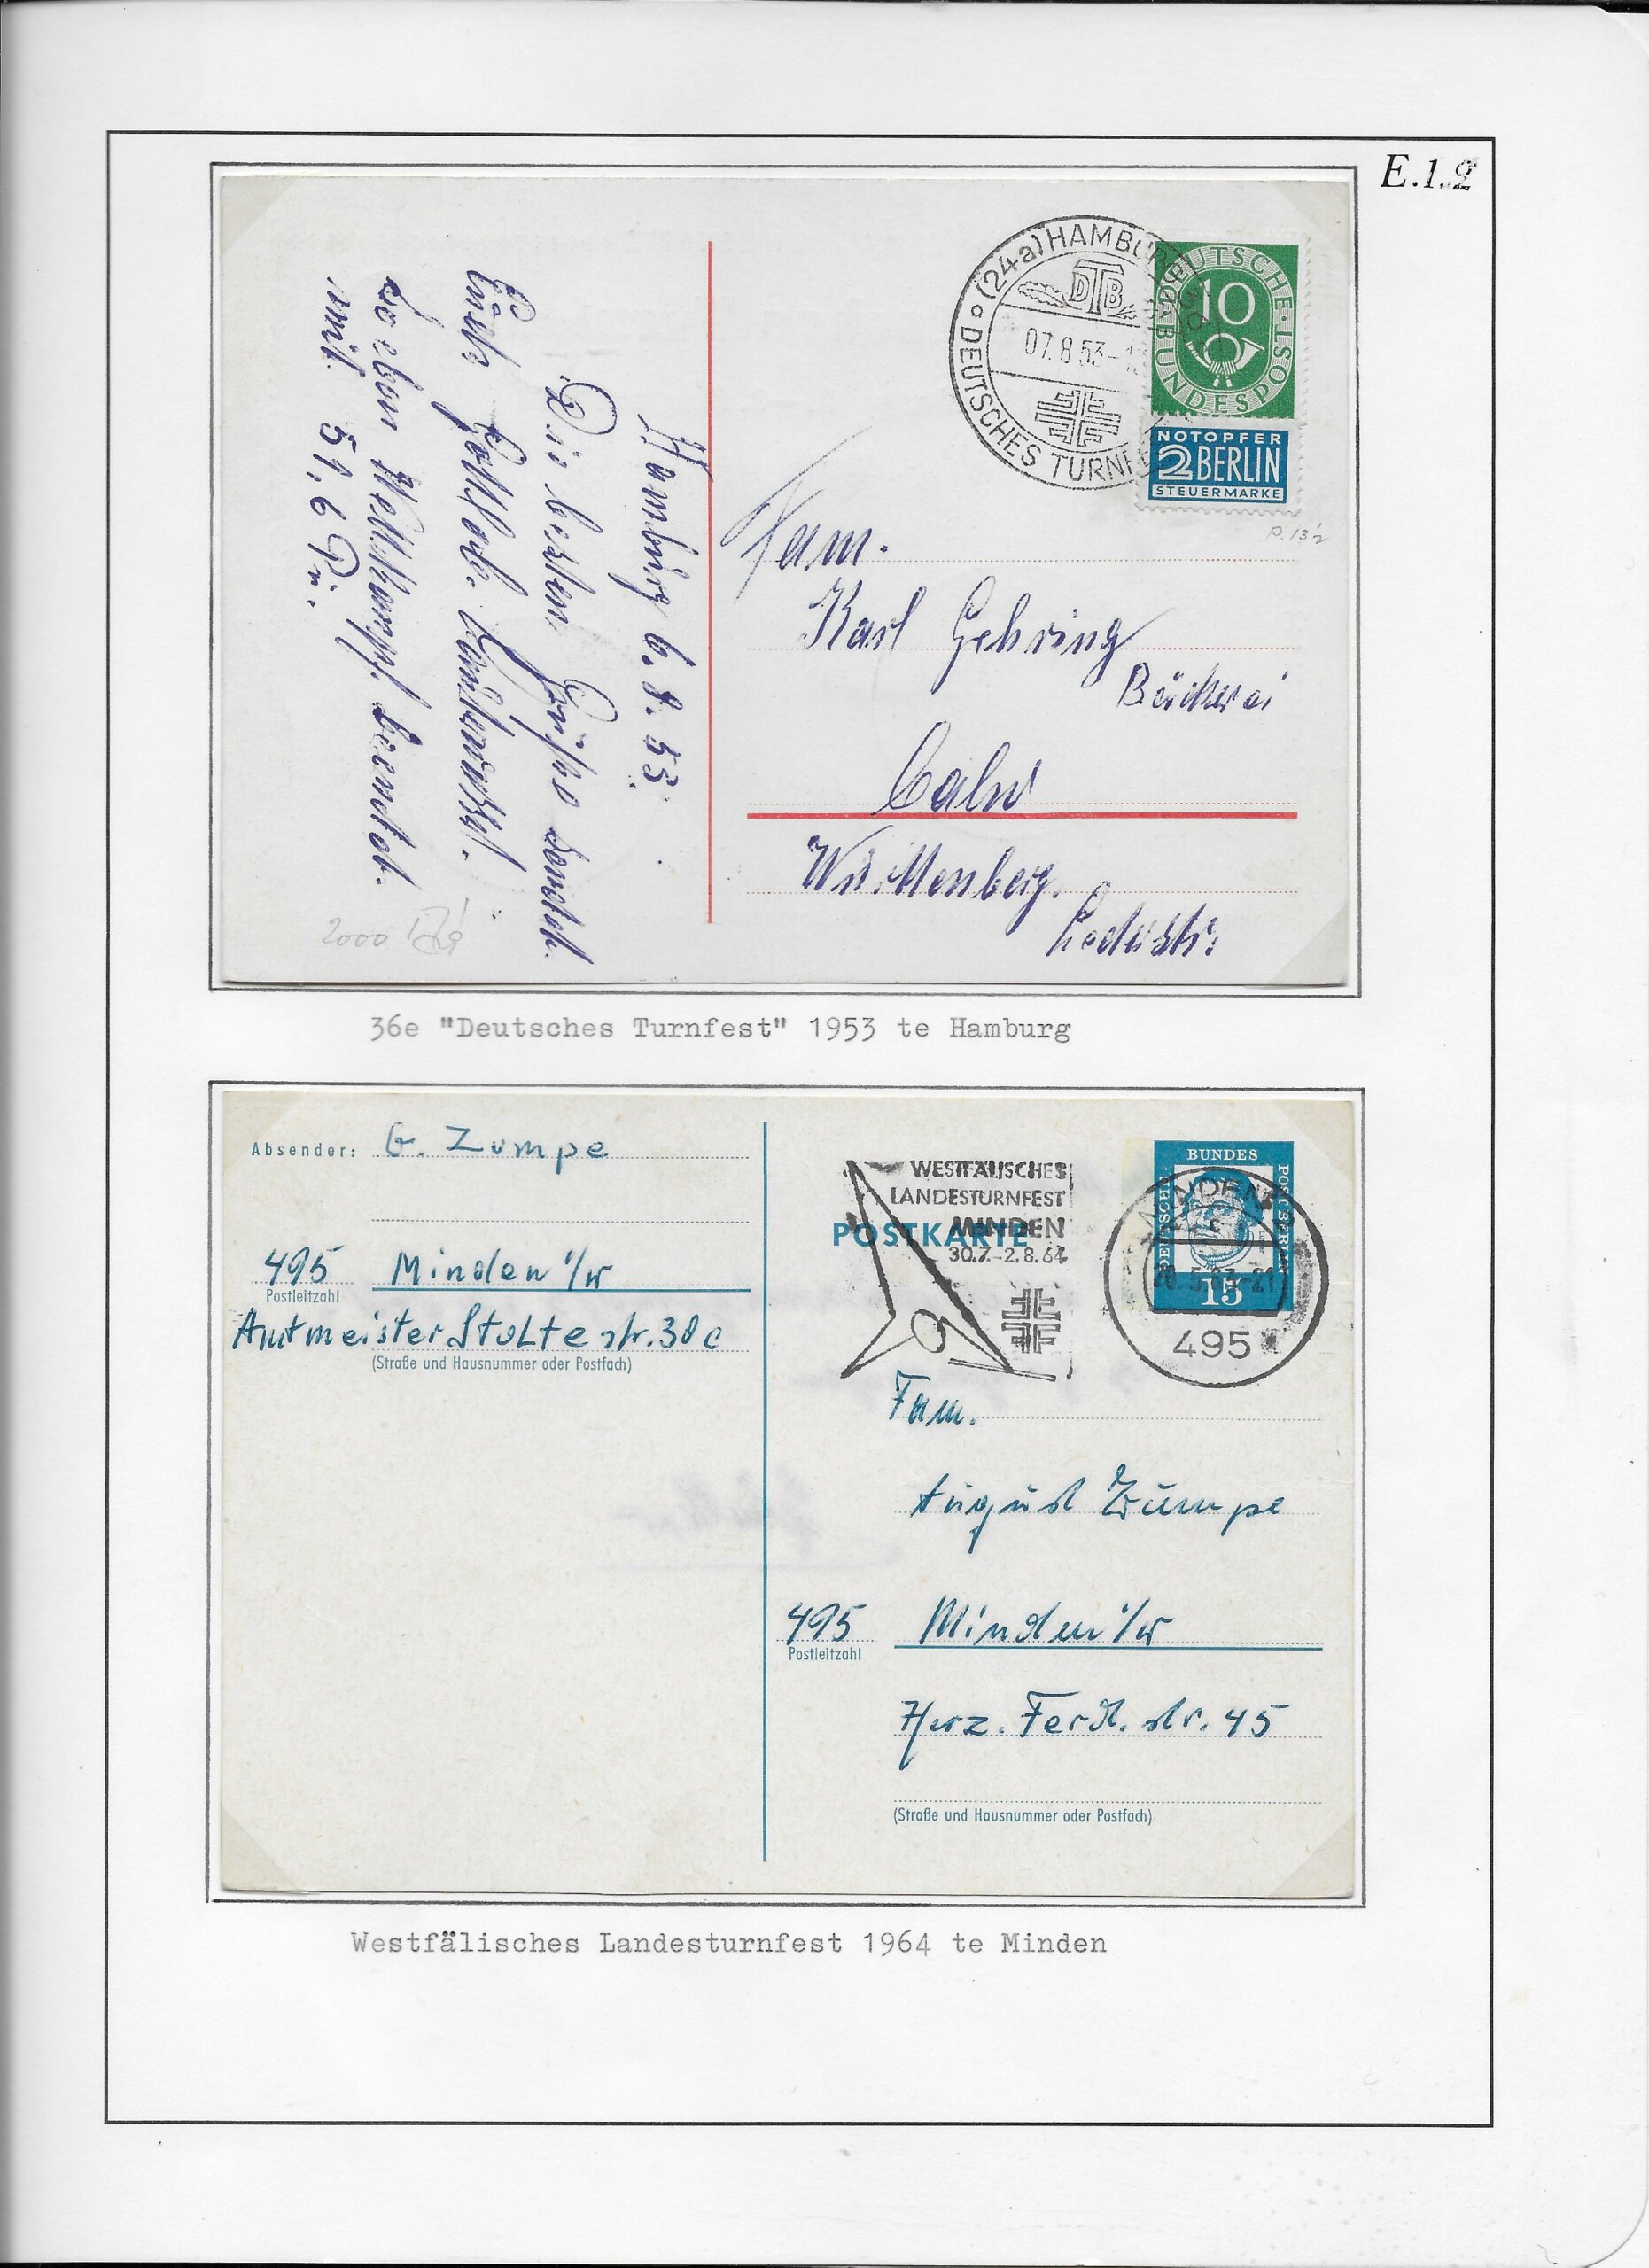 E.1.2
(24a) HAMBURG
DTB
07.8.53-1
DEUTSCHES TURNFE
DEUTSCHE BUNDESPOST
10
NOTOPFER
2 BERLIN
STEUERMARKE
Hamburg 6.8.53.
Die besten Grüße sendet
Euch
Soeben Wettkampf beendet.
mit 51,6 P.
Fam.
Karl Gehring
Bäckerei
Calw
Württemberg.
Lederstr.
36e "Deutsches Turnfest" 1953 te Hamburg
Absender: G. Zumpe
495 Minden i/W
Postleitzahl
Amtmeister Stolte str. 38c
(Straße und Hausnummer oder Postfach)
WESTFÄLISCHES
LANDESTURNFEST
MINDEN
30.7.-2.8.64
POSTKARTE
DEUTSCHE BUNDESPOST BERLIN
15
MINDEN
495
Fam.
August Zumpe
495 Minden i/W
Postleitzahl
Herz. Ferd. str. 45
(Straße und Hausnummer oder Postfach)
Westfälisches Landesturnfest 1964 te Minden